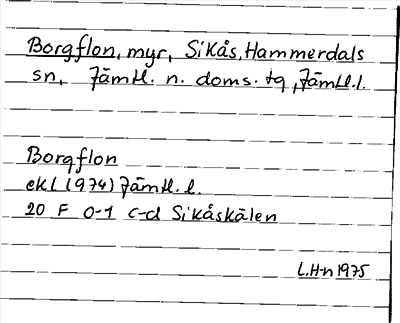 Borgflon, myr, Sikås, Hammerdals
sn, Jämtl. n. doms. tg, Jämtl.l.
Borgflon
ekl (1974) Jämtl. l.
20 F 0-1 c-d Sikåskälen
L.H-n 1975